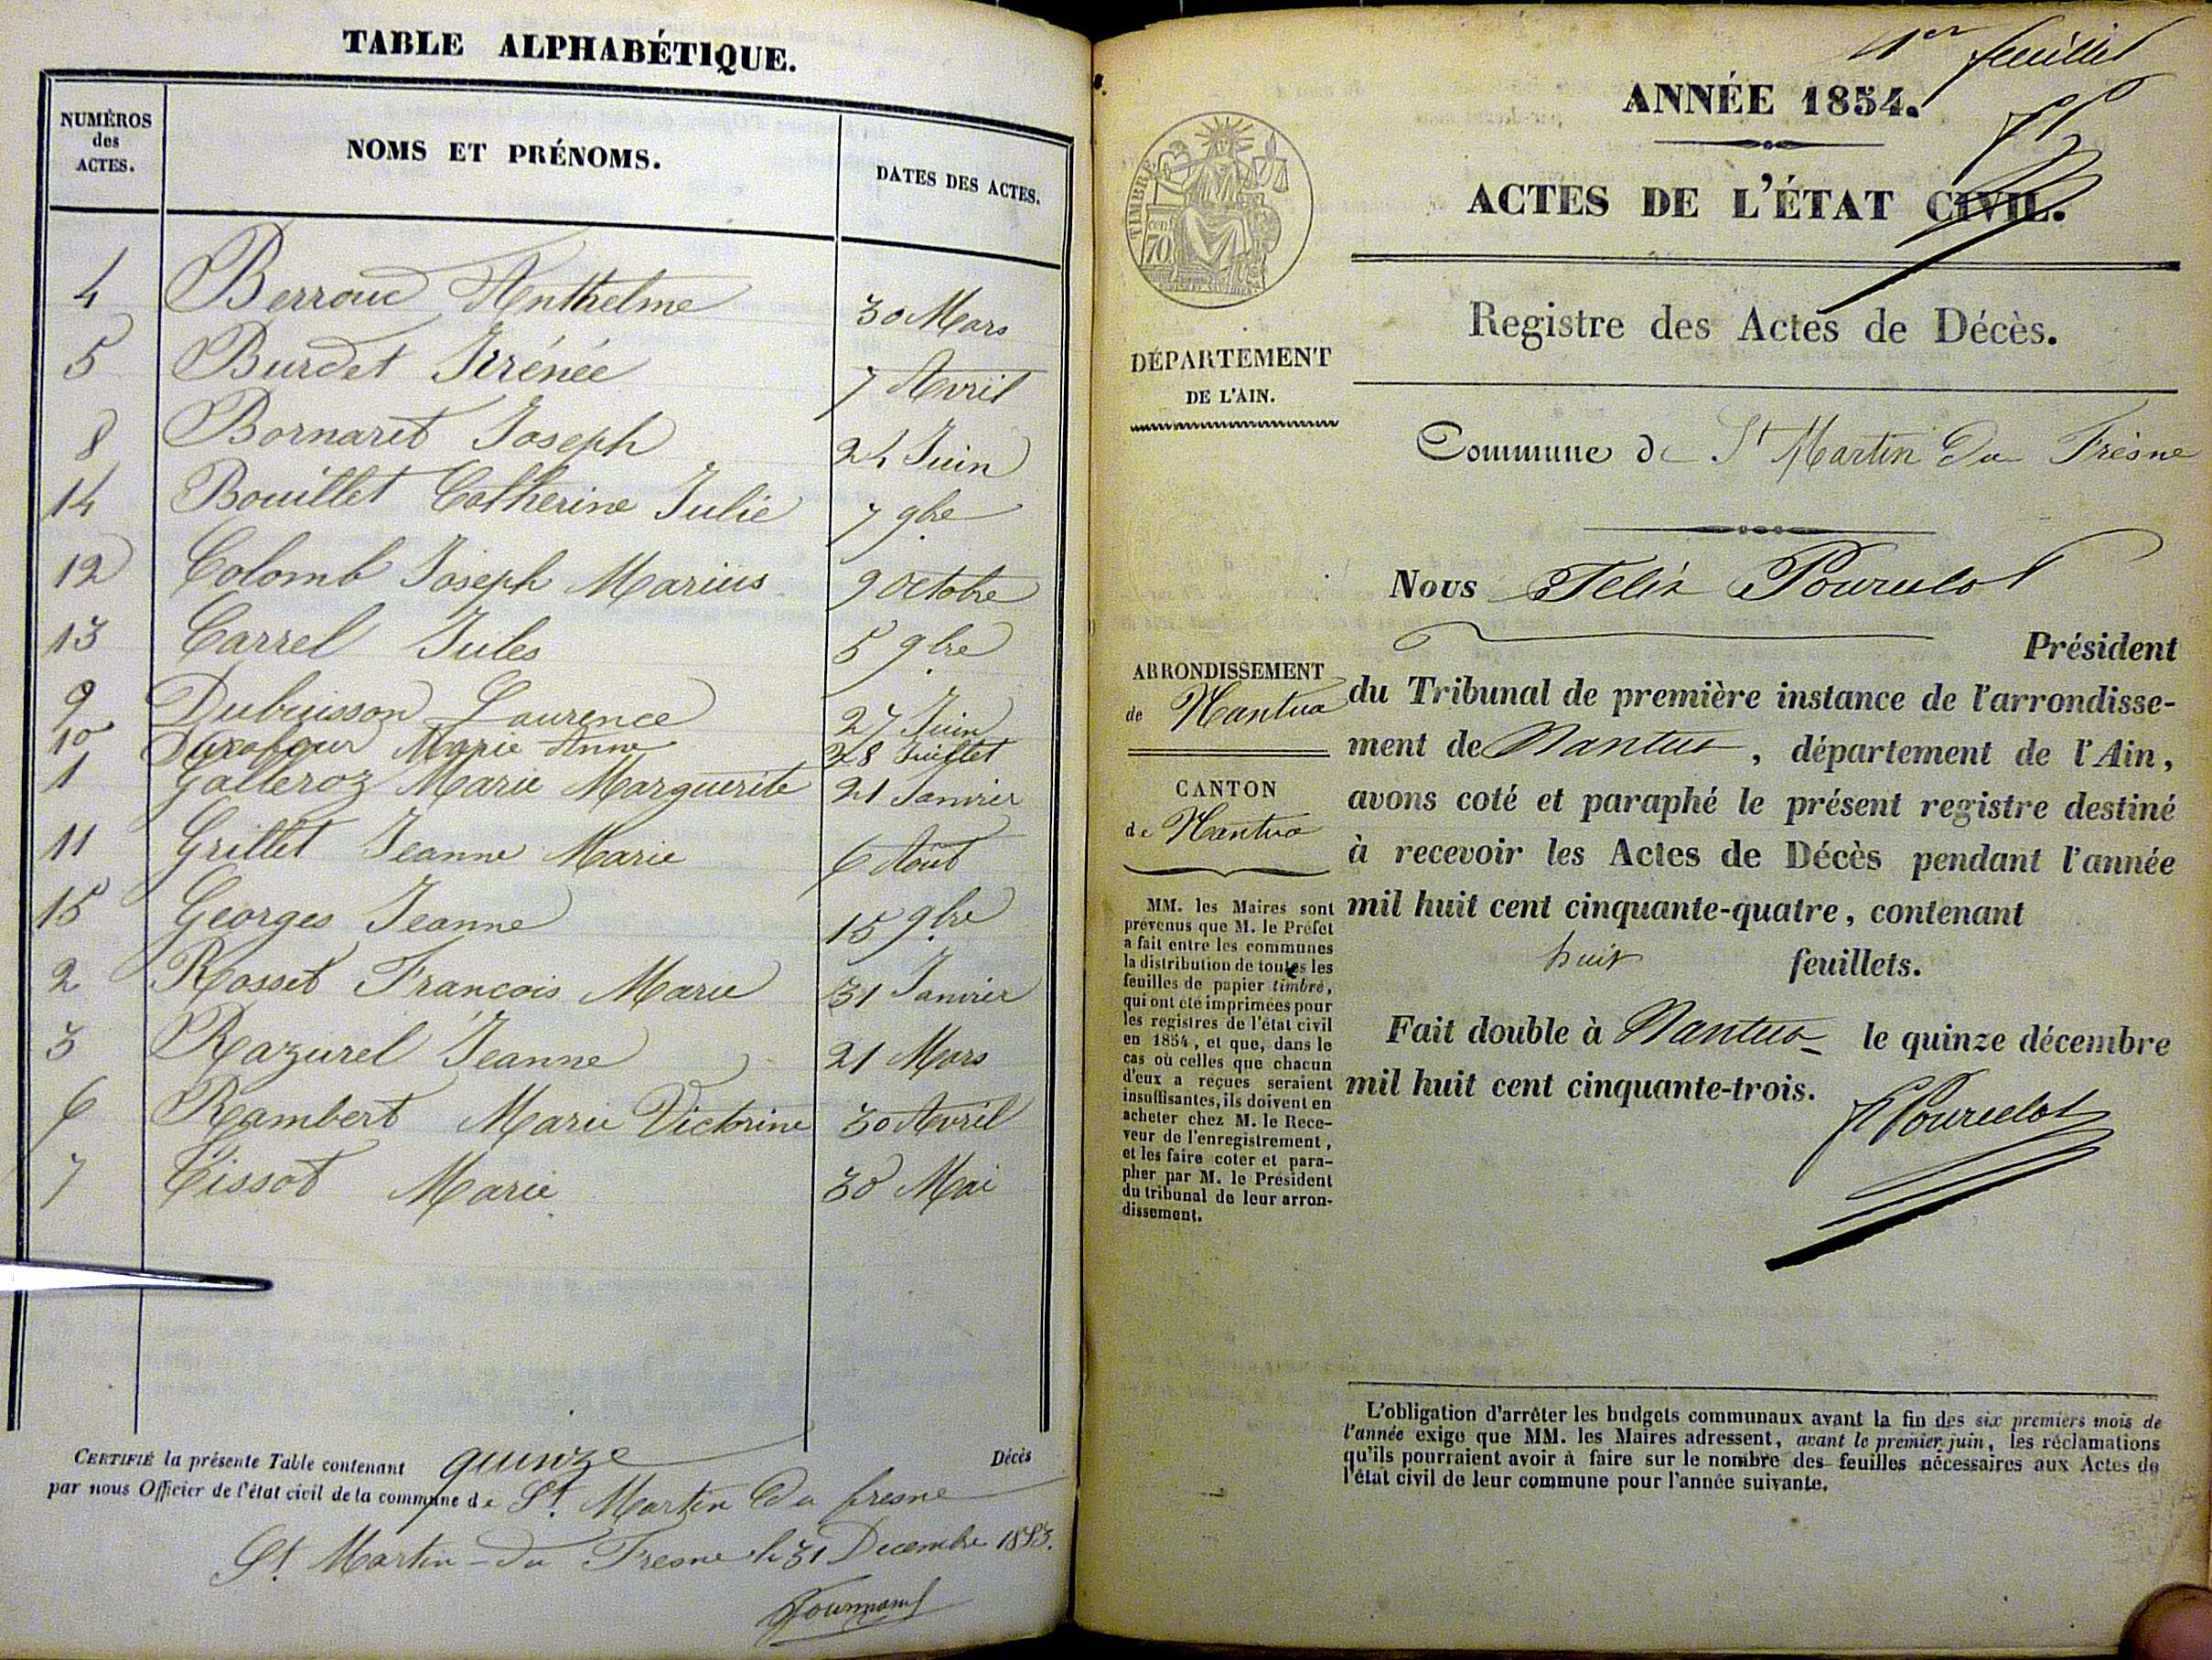 TABLE ALPHABÉTIQUE.
NUMÉROS
des
ACTES.
NOMS ET PRÉNOMS.
DATES DES ACTES.
4 Berroud Anthelme 30 Mars
5 Burdet Irénée 7 Avril
8 Bornaret Joseph 24 Juin
14 Bouillet Catherine Julie 7 9bre
12 Colomb Joseph Marius 9 Octobre
13 Carrel Jules 5 9bre
9 Dubuisson Laurence 27 Juin
10 Marie Anne 28 Juillet
1 Galleroz Marie Marguerite 21 Janvier
11 Grillet Jeanne Marie 6 Août
15 Georges Jeanne 15 9bre
2 Rosset Francois Marie 31 Janvier
3 Razurel Jeanne 21 Mars
6 Rambert Marie Victorine 30 Avril
7 Tissot Marie 30 Mai
CERTIFIÉ la présente Table contenant quinze Décès
par nous Officier de l'état civil de la commune de St. Martin du fresne
St Martin-du Fresne le 31 Decembre 1853.
1er feuillet
ANNÉE 1854.
ACTES DE L'ÉTAT CIVIL.
Registre des Actes de Décès.
TIMBRE
70
DÉPARTEMENT
DE L'AIN.
Commune de St Martin du Fresne
Nous Felix Pourcelot
Président
ARRONDISSEMENT
de Nantua
CANTON
de Nantua
du Tribunal de première instance de l'arrondisse-
ment de Nantua, département de l'Ain,
avons coté et paraphé le présent registre destiné
à recevoir les Actes de Décès pendant l'année
mil huit cent cinquante-quatre, contenant
huit feuillets.
Fait double à Nantua le quinze décembre
mil huit cent cinquante-trois.
F Pourcelot
MM. les Maires sont
prévenus que M. le Préfet
a fait entre les communes
la distribution de toutes les
feuilles de papier timbré,
qui ont été imprimées pour
les registres de l'état civil
en 1854, et que, dans le
cas où celles que chacun
d'eux a reçues seraient
insuffisantes, ils doivent en
acheter chez M. le Rece-
veur de l'enregistrement,
et les faire coter et para-
pher par M. le Président
du tribunal de leur arron-
dissement.
L'obligation d'arrêter les budgets communaux avant la fin des six premiers mois de
l'année exige que MM. les Maires adressent, avant le premier juin, les réclamations
qu'ils pourraient avoir à faire sur le nombre des feuilles nécessaires aux Actes de
l'état civil de leur commune pour l'année suivante.